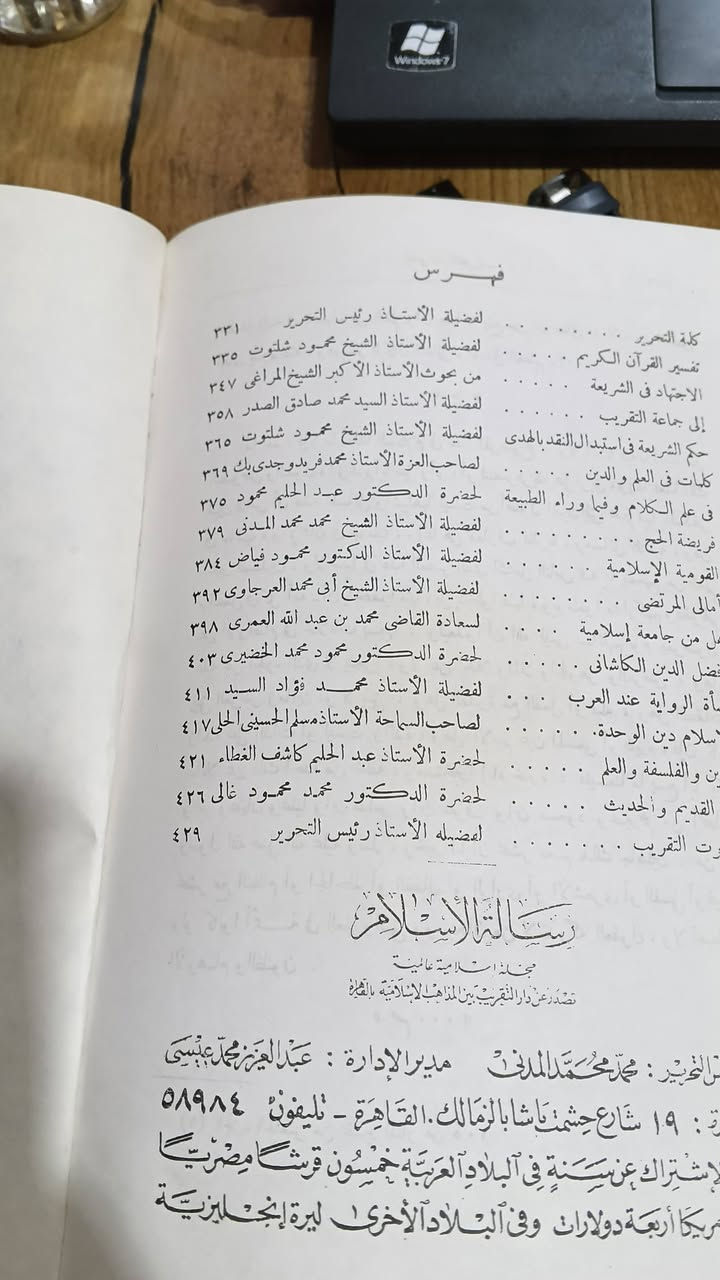 Windows 7
فهرس
كلمة التحرير . . . . . . . لفضيلة الأستاذ رئيس التحرير ٣٣١
تفسير القرآن الكريم . . . . . لفضيلة الأستاذ الشيخ محمود شلتوت ٣٣٥
الاجتهاد فى الشريعة . . . . . من بحوث الأستاذ الأكبر الشيخ المراغى ٣٤٧
إلى جماعة التقريب . . . . . . لفضيلة الأستاذ السيد محمد صادق الصدر ٣٥٨
حكم الشريعة فى استبدال النقد بالهدى لفضيلة الأستاذ الشيخ محمود شلتوت ٣٦٥
كلمات فى العلم والدين . . . . . لصاحب العزة الأستاذ محمد فريد وجدى بك ٣٦٩
فى علم الكلام وفيما وراء الطبيعة لحضرة الدكتور عبد الحليم محمود ٣٧٥
فريضة الحج . . . . . . . . . لفضيلة الأستاذ الشيخ محمد محمد المدنى ٣٧٩
القومية الإسلامية . . . . . . لفضيلة الأستاذ الدكتور محمود فياض ٣٨٤
أمالى المرتضى . . . . . . . . لفضيلة الأستاذ الشيخ أبى محمد العرجاوى ٣٩٢
من جامعة إسلامية . . . . لسعادة القاضى محمد بن عبد الله العمرى ٣٩٨
الدين الكاشانى . . . . . لحضرة الدكتور محمود محمد الخضيرى ٤٠٣
الرواية عند العرب . . . لفضيلة الأستاذ محمد فؤاد السيد ٤١١
دين الوحدة . . . . . . لصاحب السماحة الأستاذ مسلم الحسينى الحلى ٤١٧
والفلسفة والعلم . . . . . لحضرة الأستاذ عبد الحليم كاشف الغطاء ٤٢١
القديم والحديث . . . . . . لحضرة الدكتور محمد محمود غالى ٤٢٦
التقريب . . . . . . . لفضيلة الأستاذ رئيس التحرير ٤٢٩
رسالة الإسلام
مجلة إسلامية عالمية
تصدر عن دار التقريب بين المذاهب الإسلامية بالقاهرة
التحرير : محمد محمد المدنى مدير الإدارة : عبد العزيز محمد عيسى
: ١٩ شارع حشمت باشا بالزمالك . القاهرة - تليفون ٥٨٩٨٤
الاشتراك عن سنة فى البلاد العربية خمسون قرشا مصريا
أربعة دولارات وفى البلاد الأخرى ليرة إنجليزية